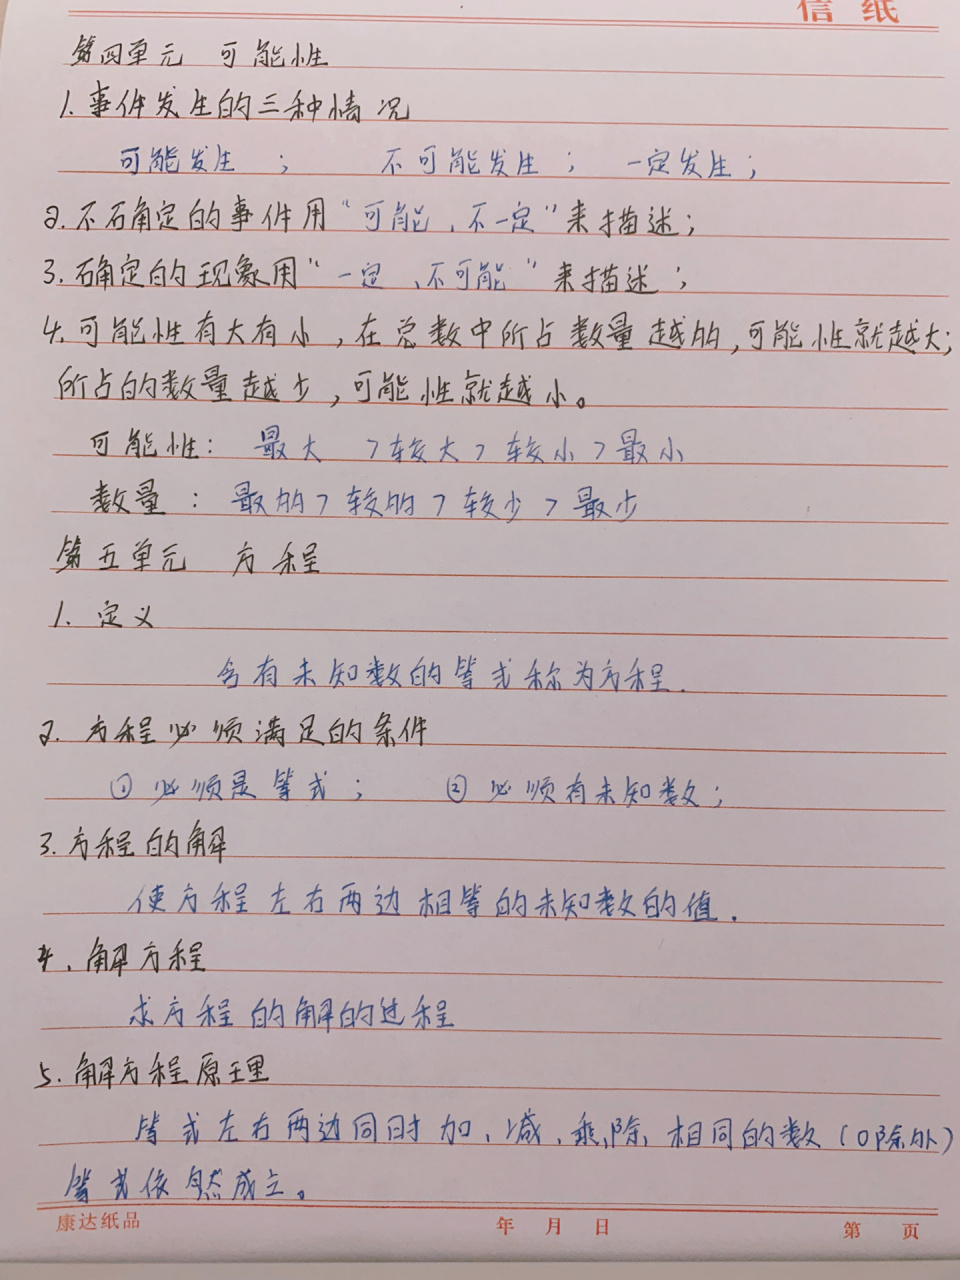 信纸
第四单元 可能性
1.事件发生的三种情况
可能发生 ; 不可能发生 ; 一定发生;
2.不确定的事件用“可能、不一定”来描述;
3.确定的现象用“一定、不可能”来描述;
4.可能性有大有小,在总数中所占数量越的,可能性就越大;
所占的数量越少,可能性就越小。
可能性: 最大 >较大>较小>最小
数量 : 最的>较的>较少>最少
第五单元 方程
1. 定义
含有未知数的等式称为方程.
2. 方程必须满足的条件
① 必须是等式; ② 必须有未知数;
3.方程的解
使方程左右两边相等的未知数的值.
4.解方程
求方程的解的过程
5.解方程原理
等式左右两边同时加、减、乘、除、相同的数(0除外)
等式依然成立。
康达纸品 年 月 日 第 页